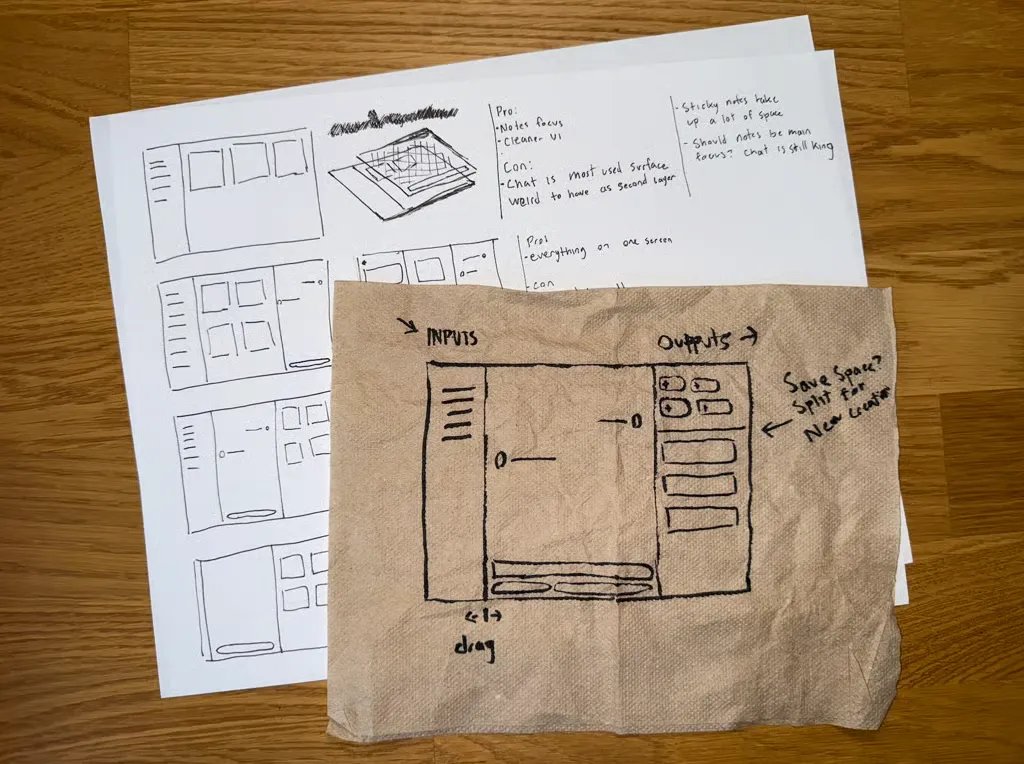 Pro:
- Notes focus
- Cleaner UI
Con:
- Chat is most used surface
weird to have as second layer
- Sticky notes take
up a lot of space
- Should notes be main
focus? Chat is still king
Pros
- everything on one screen
- con
INPUTS
Outputs
Save Space?
Split for
New
drag